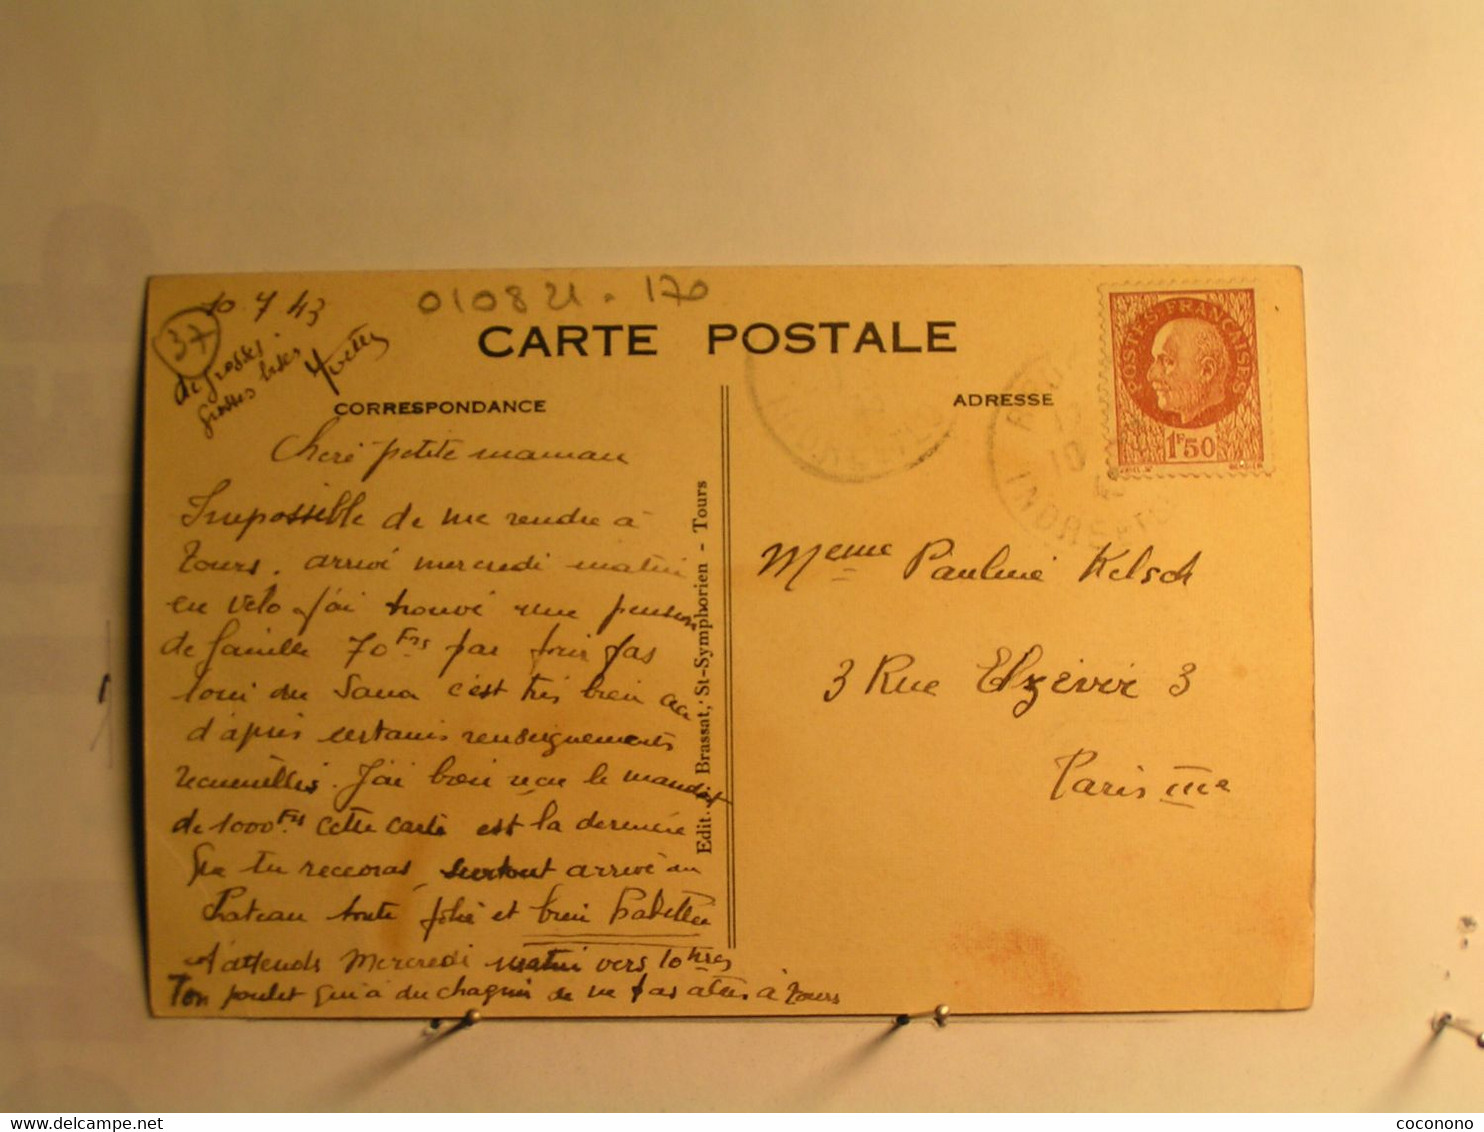 10.7.43
37
010821.170
de grosses
grosses bises
Yvette
CARTE POSTALE
CORRESPONDANCE
ADRESSE
Cheré petite maman
Impossible de me rendre à
Tours. arrivé mercredi matin
en vélo. J'ai trouvé une pension
de famille 70 Frs par jour pas
loin du Sana c'est très bien
d'après certains renseignements
recueillis. J'ai bien reçu le mandat
de 1000 Frs cette carte est la dernière
que tu recevras surtout arrive au
Plateau toute jolie et bien
t'attends Mercredi matin vers 10 hres
Ton poulet qui a du chagrin de ne pas à Tours
Edit. J. Brassat, St-Symphorien - Tours
POSTES FRANÇAISES
1F50
INDRE-ET-L
Meme Pauline Kelsch
3 Rue Elzévir 3
Paris IIIe
coconono